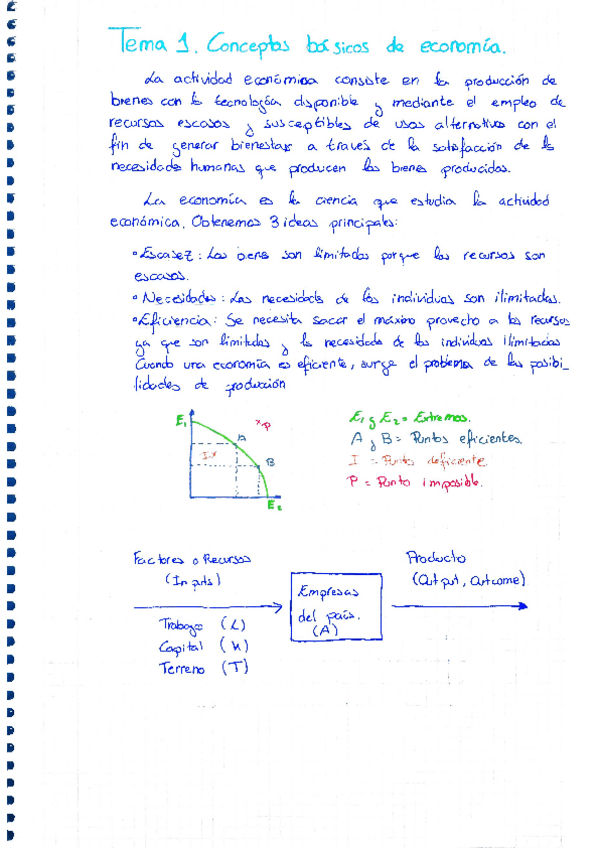 Tema 1. Conceptos básicos de economía.
La actividad económica consiste en la producción de
bienes con la tecnología disponible y mediante el empleo de
recursos escasos y susceptibles de usos alternativos con el
fin de generar bienestar a través de la satisfacción de las
necesidades humanas que producen los bienes producidos.
La economía es la ciencia que estudia la actividad
económica. Obtenemos 3 ideas principales:
• Escasez: Los bienes son limitados porque los recursos son
escasos.
• Necesidades: Las necesidades de los individuos son ilimitadas.
• Eficiencia: Se necesita sacar el máximo provecho a los recursos
ya que son limitados y la necesidade de los individuos ilimitadas
Cuando una economía es eficiente, surge el problema de las posibi_
lidades de producción
E₁
x P
A
I x
B
E₂
E₁ y E₂ = Extremos.
A y B = Puntos eficientes.
I = Punto deficiente
P = Punto imposible.
Factores o Recursos
(Inputs)
Trabajo (L)
Capital (K)
Terreno (T)
Empresas
del país.
(A)
Producto
(Output, Outcome)